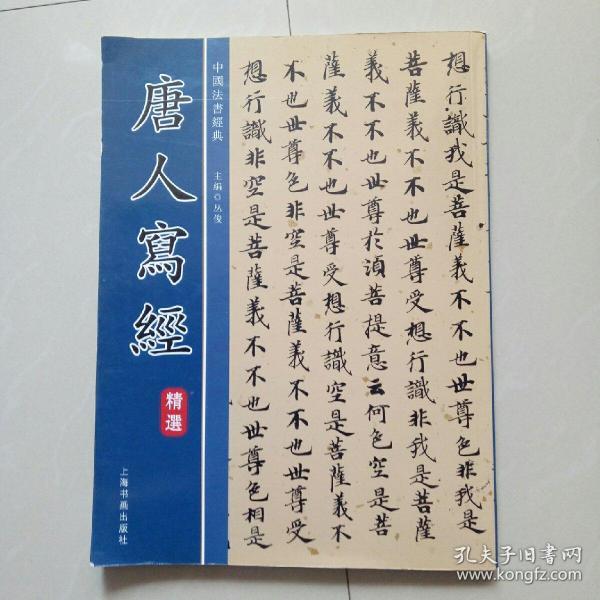 唐人寫經
精選
上海书画出版社
中國法書經典
主編◎丛俊
想行識我是菩薩義不不也世尊色非我是
菩薩義不不也世尊受想行識非我是菩薩
義不不也世尊於湏菩提意云何色空是菩
薩義不不也世尊受想行識空是菩薩義不
不也世尊色非空是菩薩義不不也世尊受
想行識非空是菩薩義不不也世尊色相是
孔夫子旧書网
www.kongfz.com